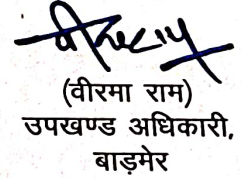 (वीरमा राम)
उपखण्ड अधिकारी,
बाड़मेर